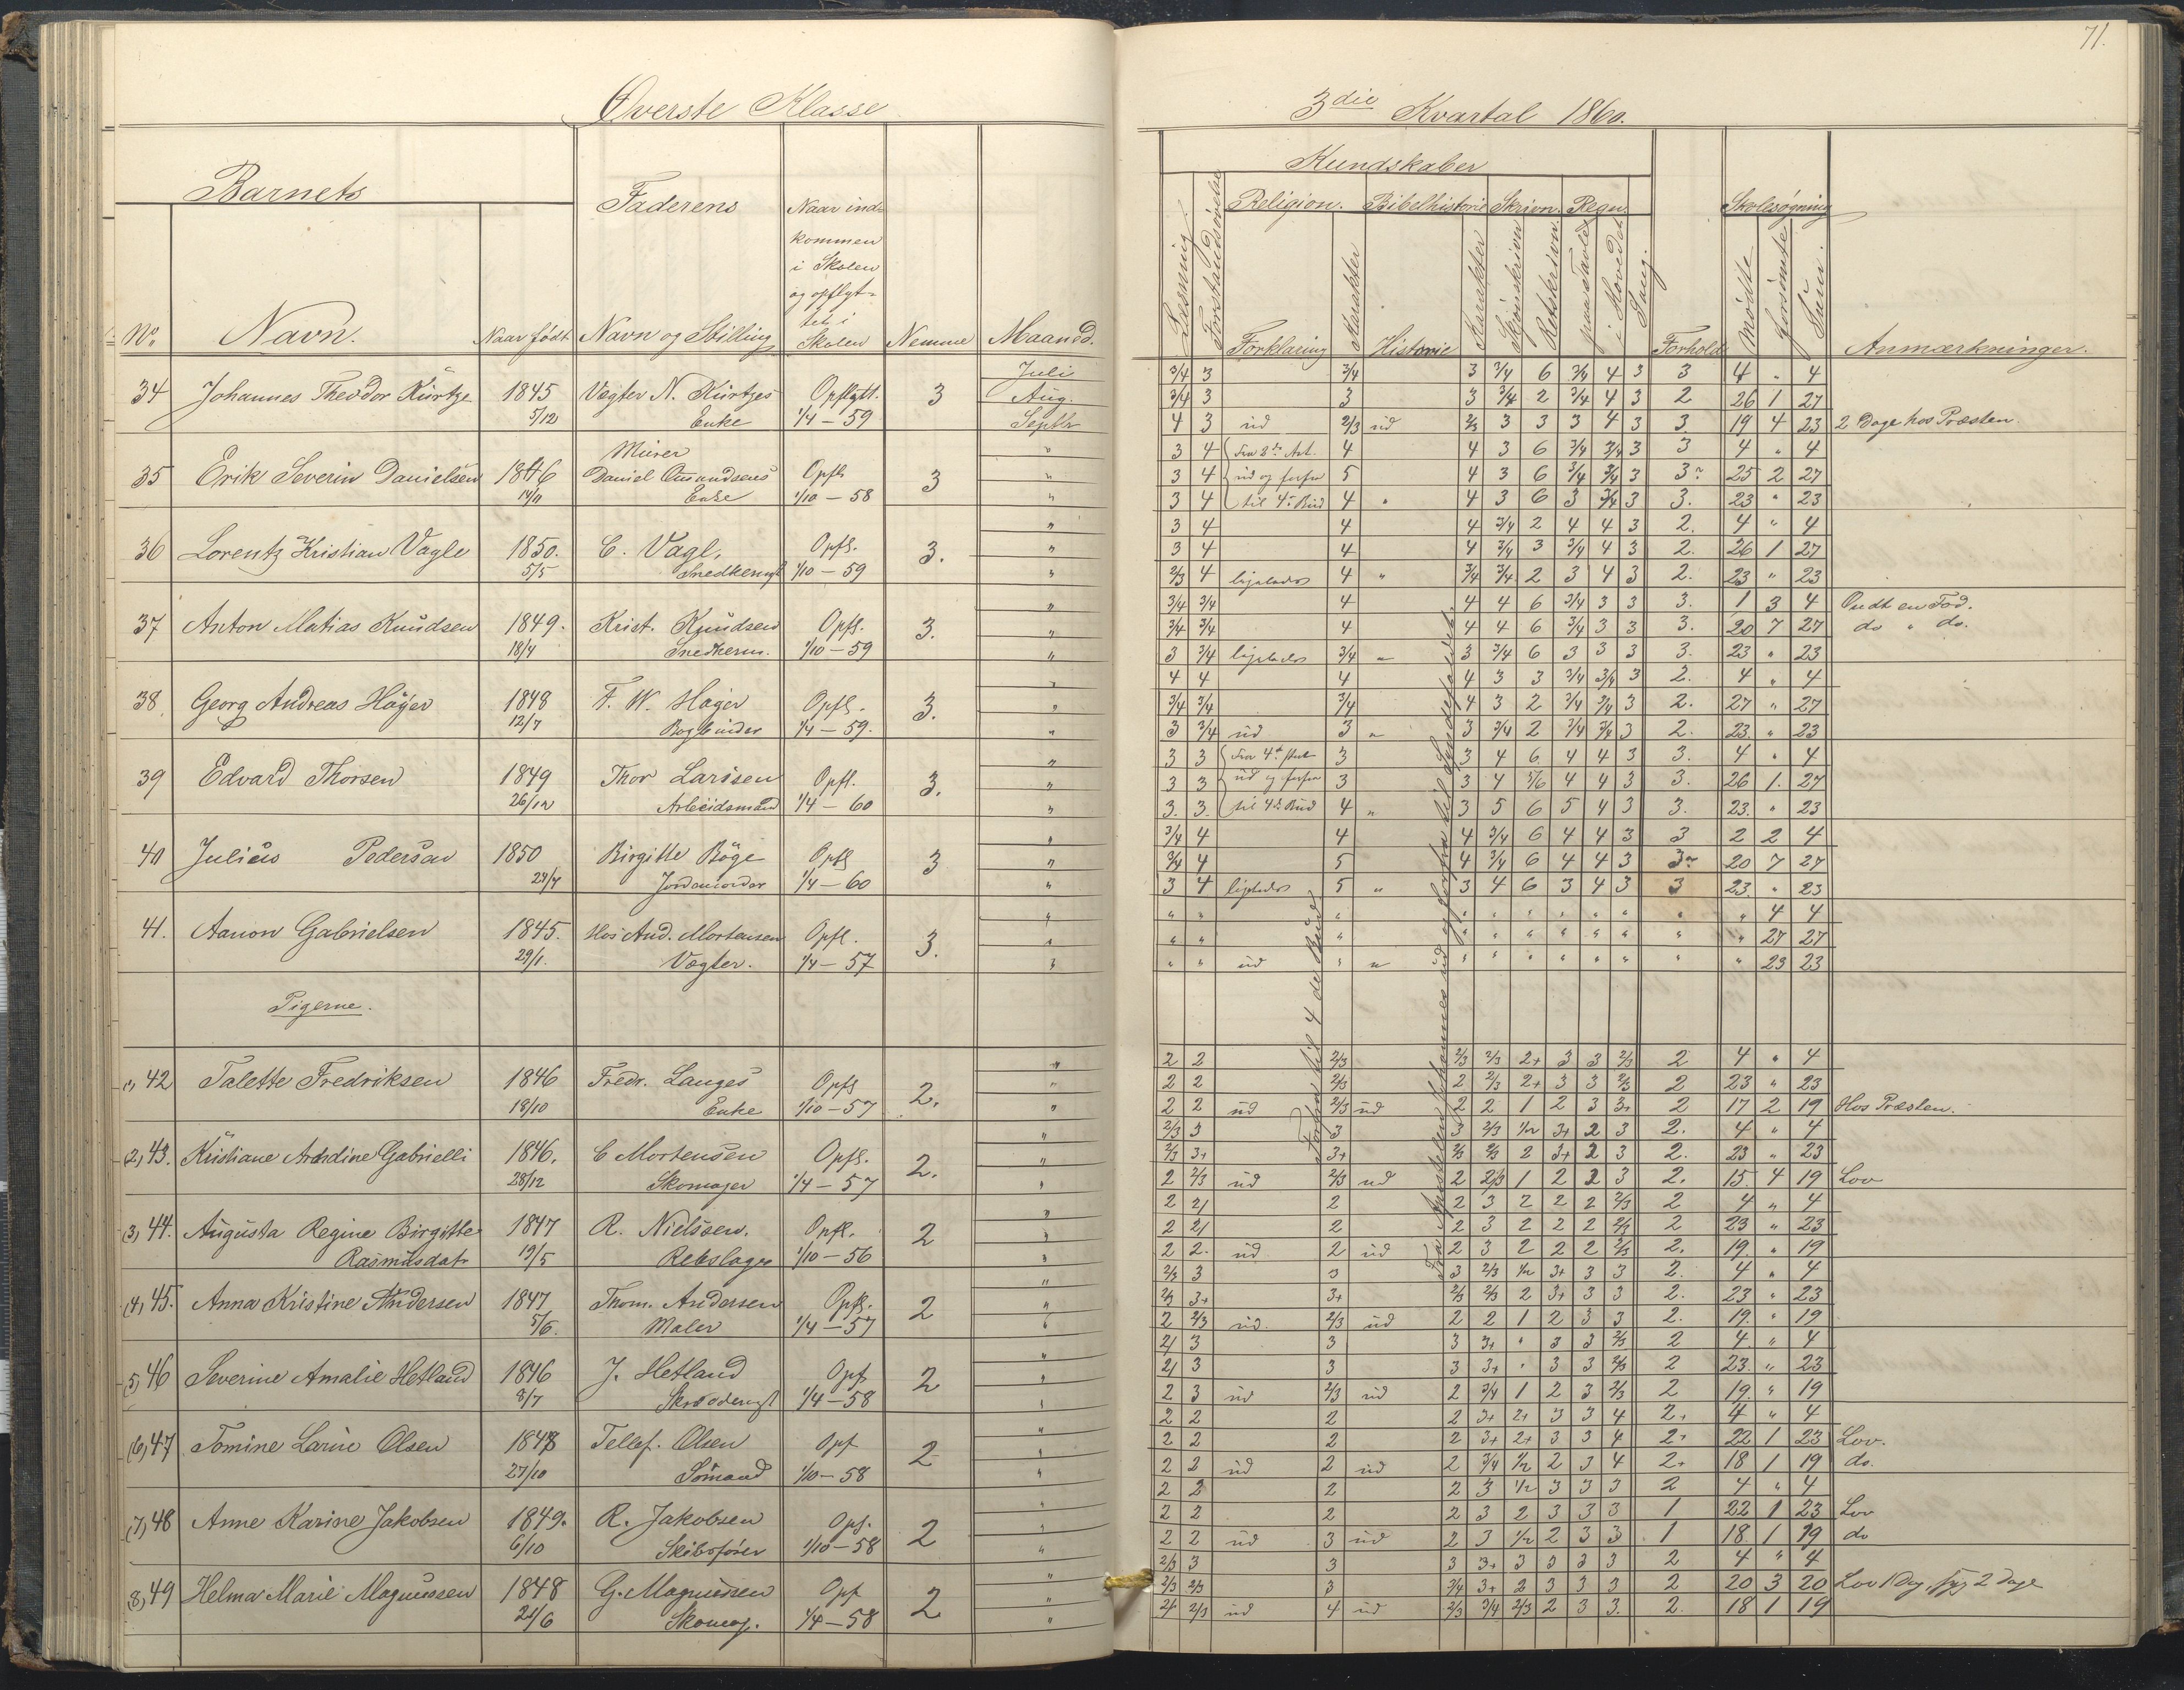 71.
Øverste Klasse
3die Kvartal 1860.
Barnets
Faderens
Naar ind-
kommen
i Skolen
og opflyt-
tet i
Skolen
No
Navn.
Naar født
Navn og Stilling
Nemme
Maaned.
Kundskaber
Læsning
Forstandsøvelse
Religion.
Forklaring
Karakter
Bibelhistorie
Historie
Karakter
Skrivn.
Skjönskrivn
Retskrivn.
Regn.
paa Tavle
i Hovedet
Sang.
Forhold
Skolesøgning
Mødte
Forsömte
Sum.
Anmærkninger.
34 Johannes Theodor Kürtze 1845 Vægter N. Kürtzes Opflytt. 3 Juli
5/12 Enke 1/4 – 59 Aug.
Septbr
3/4 3 3/4 3 3/4 6 3/4 4 3 3 4 " 4
3/4 3 3 3 3/4 2 3/4 4 3 2 26 1 27
4 3 ud 2/3 ud 2/3 3 3 3 4 3 3 19 4 23 2 Dage hos Præsten.
35 Erik Severin Danielsen 1846 Murer
14/11 Daniel Omundsens Opfl. 3
Enke 1/10 – 58
3 4 Fra 2den Art. 4 4 3 6 3/4 3/4 3 3 4 " 4
3 4 ud og forfra 5 4 3 6 3/4 3/4 3 3 25 2 27
3 4 til 4de Bud 4 " 4 3 6 3 3/4 3 3. 23 " 23
36 Lorentz Kristian Vagle 1850. C. Vagl, Opfl. 3.
5/5 Snedkersv. 1/10 – 59
3 4 4 4 3/4 2 4 4 3 2. 4 " 4
3 4 4 4 3/4 3 3/4 4 3 2. 26 1 27
2/3 4 ligeledes 4 " 3/4 3/4 2 3 4 3 2. 23 " 23
37 Anton Matias Knudsen 1849. Krist. Knudsen Opfl. 3.
18/4 Snedkersv. 1/10 – 59
3/4 3/4 4 4 4 6 3/4 3 3 3. 1 3 4 Ondt en Fod.
3/4 3/4 4 4 4 6 3/4 3 3 3. 20 7 27 do " do.
3 3/4 ligeledes 3/4 " 3 3/4 6 3 3 3 3. 23 " 23
38 Georg Andreas Höyer 1848 F. W. Höyer Opfl. 3.
12/7 Bogbinder 1/4 – 59.
4 4 4 4 3 3 3/4 3/4 3 2. 4 " 4
3/4 3/4 3/4 4 3 2 3/4 3/4 3 2. 27 " 27
3 3/4 ud 3 " 3 3/4 2 3/4 3/4 3 2. 23. " 23
39 Edvard Thorsen 1849 Thor Larssen Opfl. 3.
26/12 Arbeidsmand 1/4 – 60
3 3 Fra 4de Part 3 3 4 6 4 4 3 3. 4 " 4
3 3 ud og forfra 3 3 4 5/6 4 4 3 3. 26 1. 27
3. 3. til 4de Bud 4 " 3 5 6 5 4 3 3. 23. " 23
40 Julius Pedersen 1850 Birgitte Böge Opfl 3
24/7 Jordemoder 1/4 – 60
3/4 4 4 4 3/4 6 4 4 3 3 2 2 4
3/4 4 5 4 3/4 6 4 4 3 3 20 7 27
3 4 ligeledes 5 " 3 4 6 3 4 3 3 23 " 23
41. Aanon Gabrielsen 1845. Hos And. Mortensen Opfl. 3.
29/1. Vægter. 1/4 – 57
" " " " " " " " " " " 4 4
" " " " " " " " " " " 27 27
" " ud " " " " " " " " " " 23 23
Pigerne.
Forfra til 4 de Bud
Fra Apostelen Johannes ud og forfra til Syndefaldet.
1) 42 Talette Fredriksen 1846 Fredr. Langes Opfl 2.
18/10 Enke 1/10 – 57
2 2 2/3 2/3 2/3 2+ 3 3 2/3 2 4 " 4
2 2 2/3 2 2/3 2+ 3 3 2/3 2 23 " 23
2 2 ud 2/3 ud 2 2 1 2 3 3+ 2 17 2 19 Hos Præsten.
2) 43. Kristiane Arndine Gabrielli 1846. C Mortensen Opfl. 2.
28/12 Skomager 1/4 – 57
2/3 3 3 3 2/3 1/2 3+ 2 3 2. 4 " 4
2/3 3+ 3+ 2/3 2/3 2 3+ 2 3 2. 23 " 23
2 2/3 ud 2/3 ud 2 2/3 1 2 2 3 2. 15 4 19 Lov
3) 44. Augusta Regine Birgitte 1847 R. Nielssen. Opfl. 2
Rasmusdatr 19/5 Rebslager 1/10 – 56
2 2/ 2 2 3 2 2 2 2/3 2 4 " 4
2 2/ 2 2 3 2 2 2 2/3 2 23 " 23
2 2. ud 2 ud 2 3 2 2 2 2/3 2. 19. " 19
4) 45. Anna Kristine Andersen 1847 Thom. Andersen Opfl. 2
5/6. Maler 1/4 – 57
2/3 3 3 3 2/3 1/2 3+ 3 3 2. 4 " 4
2/3 3+ 3+ 2/3 2/3 2 3+ 3 3 2. 23 " 23
2 2/3 ud. 2/3 ud 2 2 1 2 3 3 2. 19. " 19
5) 46 Severine Amalie Hetland 1846 J. Hetland Opf 2
8/7 Skrædersv 1/4 – 58
2/ 3 3 3 3+ " 3 3 2/3 2 4. " 4
2/ 3 3 3 3+ " 3 3 2/3 2 23. " 23
2 3 ud 2/3 ud 2 3/4 1 2 3 2/3 2 19. " 19
6) 47 Tomine Larine Olsen 1848 Tellef. Olsen Opf 2
27/10 Sömand 1/10 – 58
2 2 2 2 3+ 2+ 3 3 4 2+ 4 " 4
2 2 2 2 3+ 2+ 3 3 4 2+ 22 1 23 Lov.
2 2 ud 2 ud 2 3/4 1/2 2 3 4 2+ 18 1 19 do.
7) 48 Anne Karine Jakobsen 1849. R. Jakobsen Opf. 2
6/10 Skibsfører 1/10 – 58
2 2 2 2 3 1/2 3 3 3 2 4 " 4
2 2 2 2 3 2 3 3 3 1 22 1 23 Lov
2 2 ud 3 ud 2 3 1/2 2 3 3 1 18 1 19 do
8) 49 Helma Marie Magnussen 1848 G. Magnussen Opf 2
21/6 Skomag. 1/4 – 58
2/3 3 3 3 3+ 3 3 3 3 2 4 " 4
2/3 2/3 3 3/4 3+ 2 3 3 3 2 20 3 20 Lov 1 Dag, syg 2 Dage
2/ 2/3 ud 4 ud 2/3 3/4 2/3 2 3 3. 2. 18 1 19